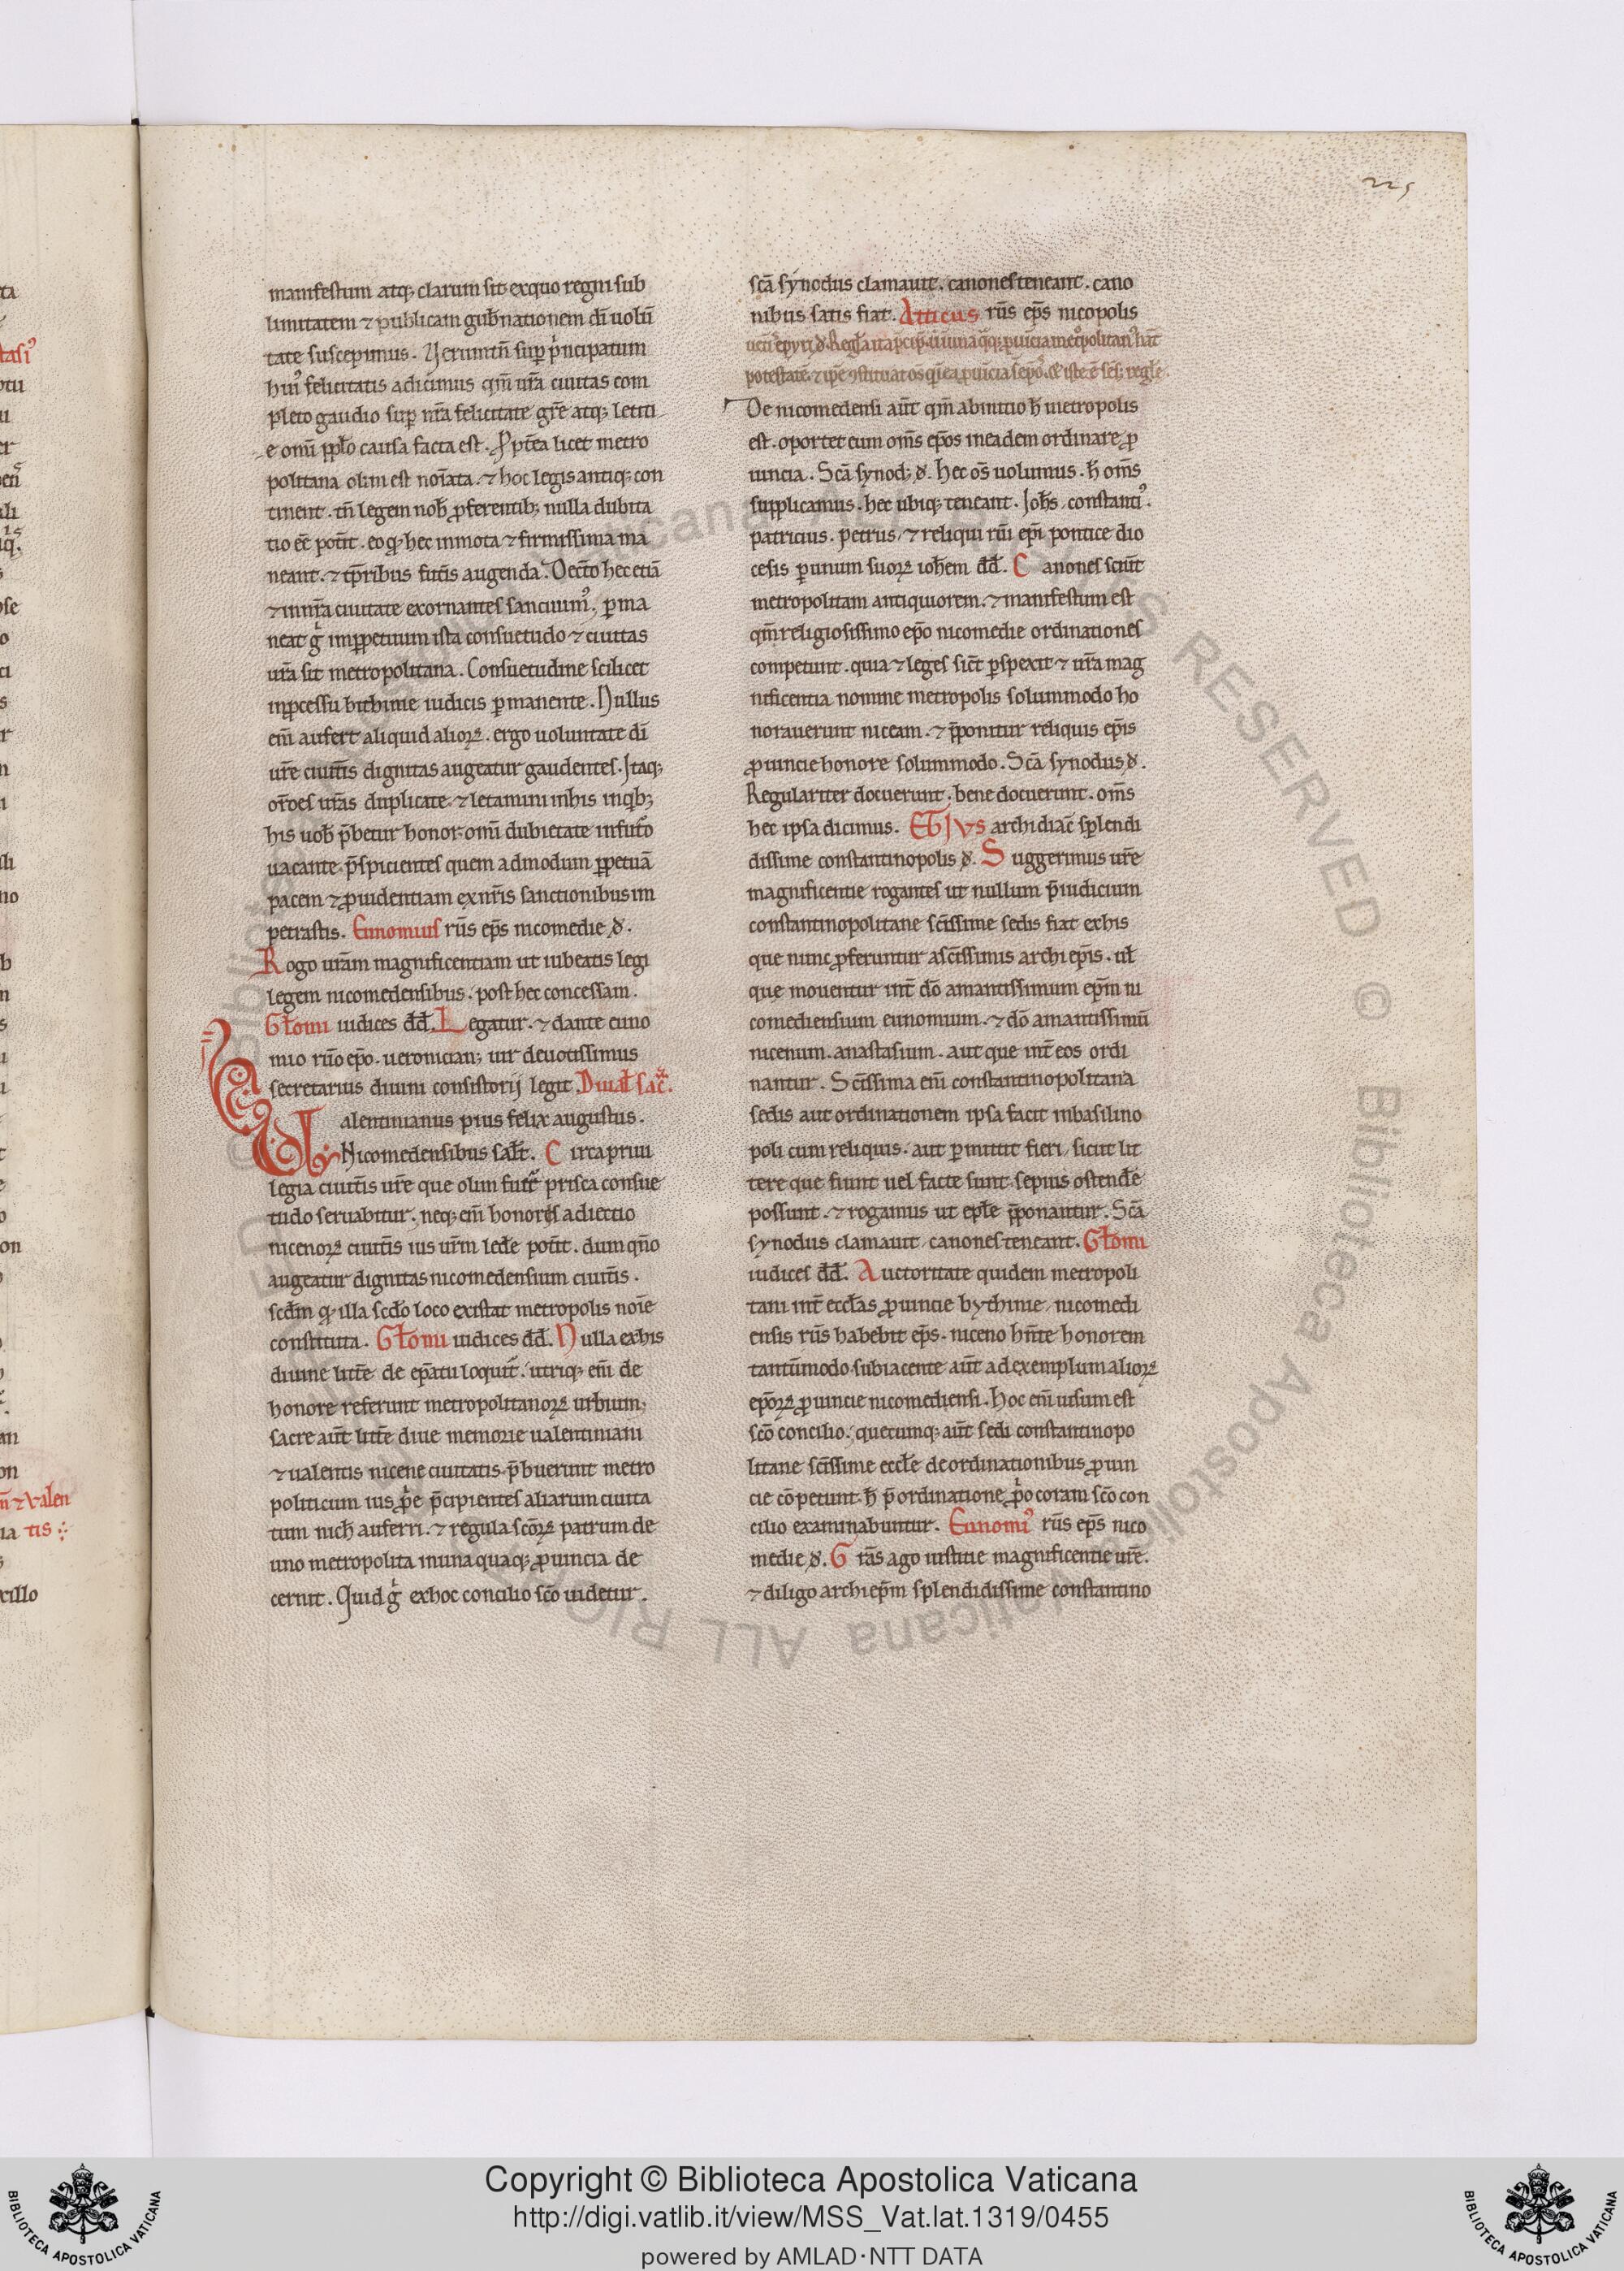 225
manifestum atq; clarum sit exquo regni sub
limitatem ⁊ publicam gub̄nationem dī uolū
tate suscepimus. Verumtn̄ sup pⁱncipatum
huiꝰ felicitatis adicimus qm̄ ur̄a ciuitas com
pleto gaudio sup nr̄a felicitate gr̄e atq; letiti
e omī ppło causa facta est. Ppt̄ea licet metro
politana olim est noīata. ⁊ hoc legis antiq; con
tinent. tn̄ legem nob̄ ꝓferentib; nulla dubita
tio eē pot̄it. eo q; hec inmota ⁊ firmissima ma
neant. ⁊ tp̄ribus fut̄is augenda. Dect̄o hec etiā
⁊ innr̄a ciuitate exornantes sanciuimꝰ, ꝑma
neat gͥ imppetuum ista consuetudo ⁊ ciuitas
ur̄a sit metropolitana. Consuetudine scilicet
inꝓcessu bithinie iudicis ꝑmanente. Nullus
em̄ aufert aliquid alioꝝ. ergo uoluntate dī
ur̄e ciuit̄is dignitas augeatur gaudentes. Itaq;
or̄oes ur̄as duplicate. ⁊ letamini inhis inqͥb;
his uob̄ p̄betur honor. omī dubietate infut̄o
uacante. p̄spicientes quem admodum ppetuā
pacem ⁊ ꝓuidentiam exnr̄is sanctionibus im
petrastis. Eunomius rūs ep̄s nicomedie đ.
Rogo ur̄am magnificentiam ut iubeatis legi
legem nicomedensibus. post hec concessam.
Głomi iudices đđ. Legatur. ⁊ dante euno
mio rūo ep̄o. ueronician; uir deuotissimus
secretarius diuini consistorij legit. Diuał sac̄ᵃ.
Valentinianus pius felix augustus.
Nicomedensibus sał̄t. Circa priui
legia ciuit̄is ur̄e que olim fuer̄ prisca consue
tudo seruabitur. neq; em̄ honoris adiectio
nicenoꝝ ciuit̄is ius ur̄m led̄e pot̄it. dum qn̄o
augeatur dignitas nicomedensium ciuit̄is.
scđm q; illa scđo loco existat metropolis noīe
constituta. Głomi iudices đđ. Nulla exhis
diuine litt̄e de ep̄atu loquit̄. utriq; em̄ de
honore referunt metropolitanoꝝ urbium;
sacre aūt litt̄e diue memorie ualentiniani
⁊ ualentis nicene ciuitatis p̄buerunt metro
politicum ius ꝓͥe p̄cipientes aliarum ciuita
tum nich̄ auferri. ⁊ regula sc̄oꝝ patrum de
uno metropolita inuna quaq; ꝓuincia de
cernit. Quid gͥ exhoc concilio sc̄o uidetur.
sc̄ā synodus clamauit. canones teneant. cano
nibus satis fiat. Atticus rūs ep̄s nicopolis
De nicomedensi aūt qm̄ abinitio h̄ metropolis
est. oportet eum om̄s ep̄os ineadem ordinare ꝓ
uincia. Sc̄ā synod; đ. hec os̄ uolumus. h̄ om̄s
supplicamus. hec ubiq; teneant. Joh̄s. constantiꝰ.
patricius. petrus. ⁊ reliqui rūi ep̄i pontice dio
cesis ꝑ unum suoꝝ ioh̄em đđ. Canones sciūt
metropolitam antiquiorem. ⁊ manifestum est
qm̄ religiosissimo ep̄o nicomedie ordinationes
competunt. quia ⁊ leges sic̄t ꝑspexit ⁊ ur̄a mag
nificentia nomine metropolis solummodo ho
norauerunt niceam. ⁊ p̄ponitur reliquis ep̄is
ꝓuincie honore solummodo. Sc̄ā synodus đ.
Regulariter docuerunt. bene docuerunt. om̄s
hec ipsa dicimus. Etius archidiac̄ splendi
dissime constantinopolis đ. Suggerimus ur̄e
magnificentie rogantes ut nullum p̄iudicium
constantinopolitane sc̄issime sedis fiat exhis
que nunc ꝓferuntur asc̄issimis archi ep̄is. uł
que mouentur int̄ dō amantissimum ep̄m ni
comediensium eunomium. ⁊ dō amantissimū
nicenum. anastasium. aut que int̄ eos ordi
nantur. Sc̄issima em̄ constantinopolitana
sedis aut ordinationem ipsa facit inbasilino
poli cum reliquis. aut ꝑmittit fieri. sicut lit
tere que fiunt uel facte sunt. sepius ostendēe
possunt. ⁊ rogamus ut epłe p̄ponantur. Sc̄ā
synodus clamauit. canones teneant. Głomi
iudices đđ. Auctoritate quidem metropoli
tani int̄ eccłas ꝓuincie bythinie. nicomedi
ensis rūs habebit ep̄s. niceno hn̄te honorem
tantūmodo. subiacente aūt ad exemplum alioꝝ
ep̄oꝝ ꝓuincie nicomediensi. Hoc em̄ uisum est
sc̄o concilio. quecumq; aūt sedi constantinopo
litane sc̄issime eccłe deordinationibus ꝓuin
cie cōpetunt. h̄ p̄ ordinatione ꝓͥo coram sc̄o con
cilio examinabuntur. Eunomiꝰ rūs ep̄s nico
medie đ. Grās ago iustitie magnificentie ur̄e.
⁊ diligo archiep̄m splendidissime constantino
Copyright © Biblioteca Apostolica Vaticana
http://digi.vatlib.it/view/MSS_Vat.lat.1319/0455
powered by AMLAD·NTT DATA
BIBLIOTECA APOSTOLICA VATICANA
BIBLIOTECA APOSTOLICA VATICANA